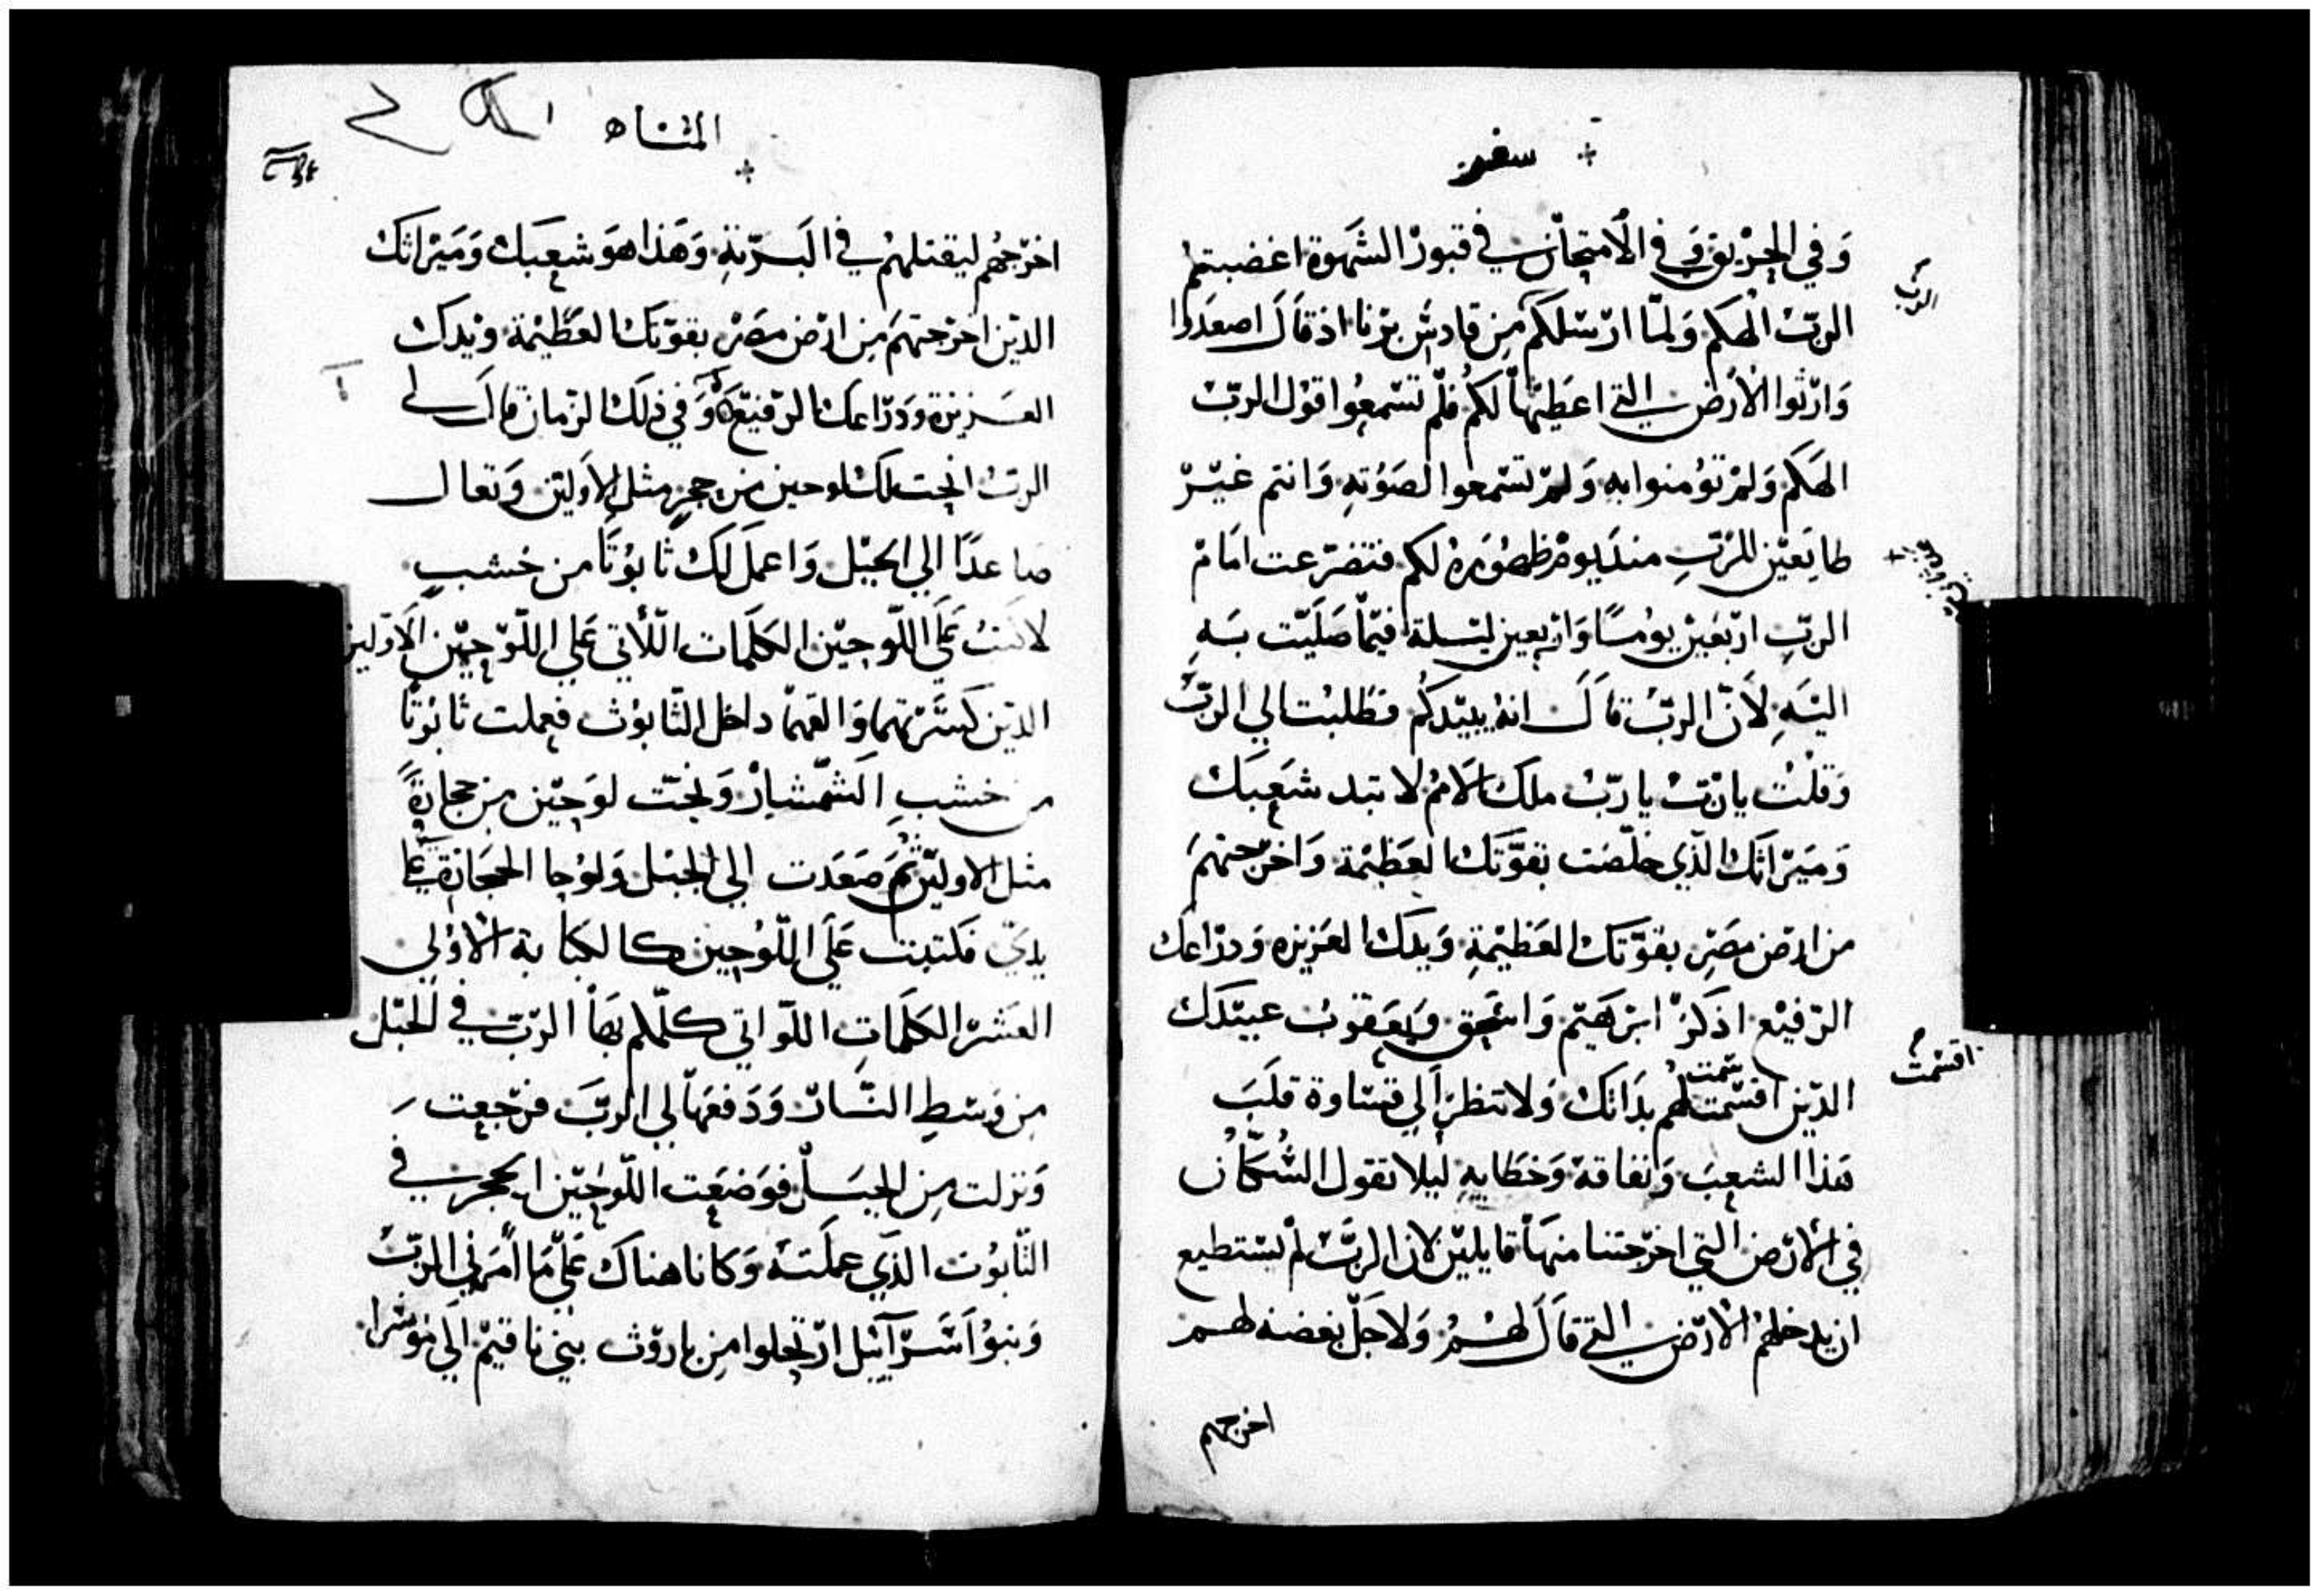 سفر
وَفي الحريق وَفي الامتحان في قبور الشهوة اغضبتم
الربّ الهكم وَلمّا ارسلكم من قادش برنا اذ قال اصعدوا
وَارثوا الارض التي اعطيتها لكم فلم تسمعوا قول الربّ
الهكم وَلم تؤمنوا به وَلم تسمعوا لصوته وَانتم غير
طايعين للربّ منذ يوم ظهوره لكم فتضرعت امام
الربّ اربعين يومًا وَاربعين ليلة فيما صليت به
اليه لانّ الربّ قال انه يبيدكم فطلبت الي الربّ
وَقلت يا ربّ يا ربّ ملك الامم لا تبد شعبك
وَميراثك الذي خلصت بقوّتك العظيمة وَاخرجتهم
من ارض مصر بقوّتك العظيمة وَيدك العزيزه وَدراعك
الرفيع اذكر ابرهيم وَاسحق وَيعقوب عبيدك
الذين اقسمت لهم بذاتك وَلا تنظر الي قساوة قلب
هذا الشعب وَنفاقه وَخطاييه ليلا تقول السكان
في الارض التي اخرجتنا منها قايلين لان الربّ لم يستطيع
ان يدخلهم الارض التي قال لهم وَلاجل بغضه لهم
اخرجهم
الربّ
اقسمت
المثناه
اخرجهم ليقتلهم في البرّية وَهذا هو شعبك وَميراثك
الذين اخرجتهم من ارض مصر بقوّتك العظيمة وَيدك
العزيزة وَدراعك الرفيع وَفي ذلك الزمان قال لي
الربّ انحت لك لوحين من حجرٍ مثل الاولين وَتعال
صاعدًا الي الجبل وَاعمل لك تابوتًا من خشبٍ
لاكتب علي اللوحين الكلمات اللاتي علي اللوحين الاولين
الذين كسرتهما وَالقهما داخل التابوت فعملت تابوتًا
من خشب الشمشار وَنحت لوحين من حجارة
مثل الاولين ثم صعدت الي الجبل وَلوحا الحجارة في
يديّ فكتبت علي اللوحين كالكتابة الاولي
العشر الكلمات اللواتي كلمكم بها الربّ في الجبل
من وسط النار وَدفعها لي الربّ فرجعت
وَنزلت من الجبل فوضعت اللوحين الحجر في
التابوت الذي عملته وَكانا هناك علي ما امرني الربّ
وَبنوُ اسرآييل ارتحلوا من باروث بني ناقيم الي موشرا